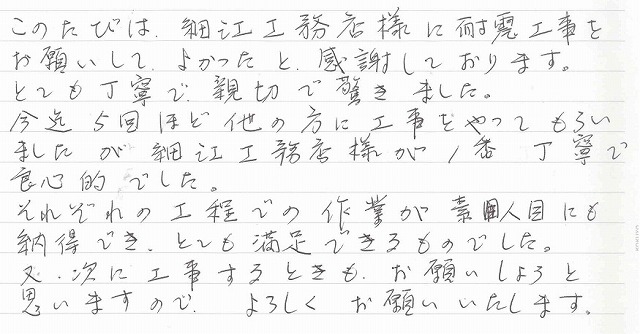 このたびは、細江工務店様に耐震工事を
お願いして、よかったと、感謝しております。
とても丁寧で、親切で驚きました。
今迄5回ほど他の方に工事をやってもらい
ましたが細江工務店様が1番丁寧で
良心的でした。
それぞれの工程での作業が素人目にも
納得でき、とても満足できるものでした。
又、次に工事するときも、お願いしようと
思いますので、よろしくお願いいたします。